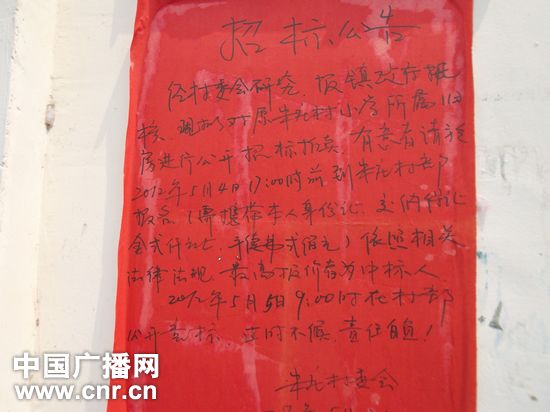 招标公告
经村委会研究，报镇政府批
核，现把对原朱瓦村小店所属旧
房进行公开招标拍卖，有意者请于
2012年5月4日17:00时前到朱瓦村部
报名（需携带本人身份证，交纳保证
金贰仟元，手续费贰佰元）依照相关
法律法规，最高报价者为中标人。
2012年5月5日9:00时在村部
公开竞标，过时不候，责任自负！
村委会
中国广播网
www.cnr.cn